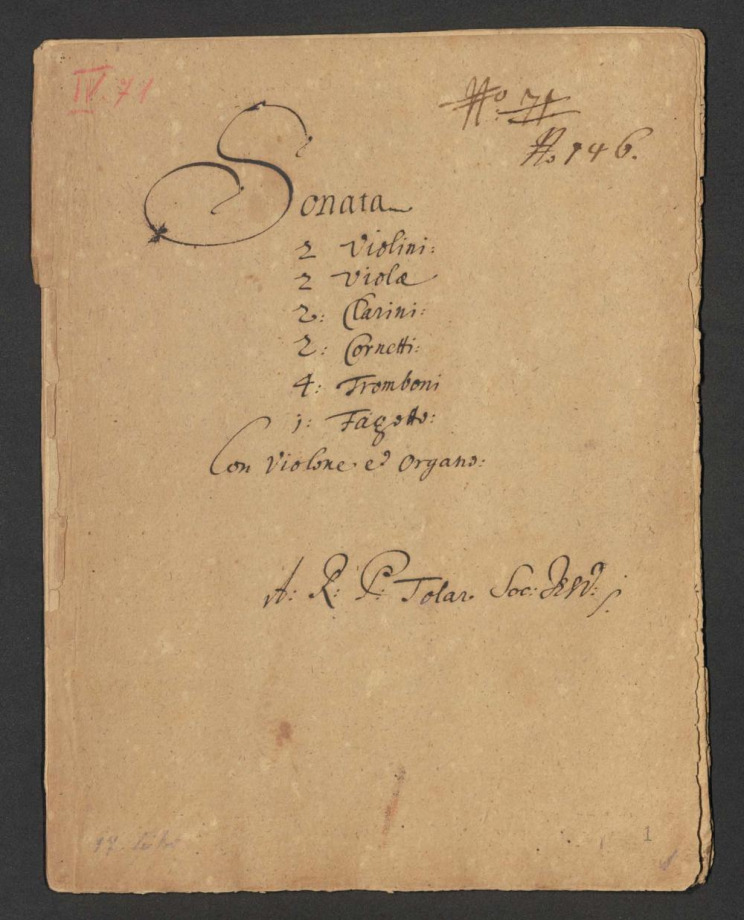 IV. 71
No. 71
No 146.
Sonata
2 Violini:
2 Violæ
2: Clarini:
2: Cornetti:
4: Tromboni
1: Fagotto:
Con Violone ed Organo:
A: R: P: Tolar Soc:
1